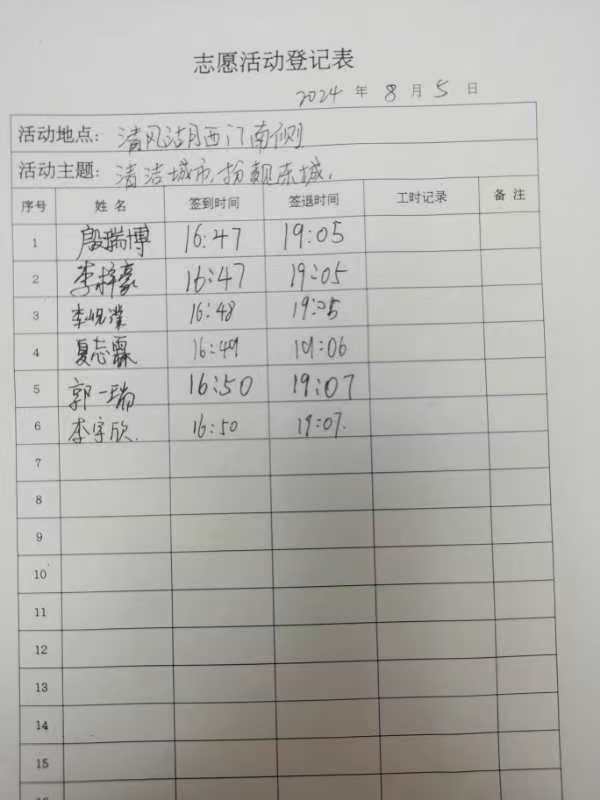 志愿活动登记表
2024 年 8 月 5 日
活动地点: 清风湖月西门南侧
活动主题: 清洁城市,扮靓东城.
序号 姓名 签到时间 签退时间 工时记录 备注
1 殷瑞博 16:47 19:05
2 李梓豪 16:47 19:05
3 16:48 19:05
4 夏志霖 16:49 19:06
5 郭一瑞 16:50 19:07
6 李宇欣. 16:50 19:07.
7
8
9
10
11
12
13
14
15